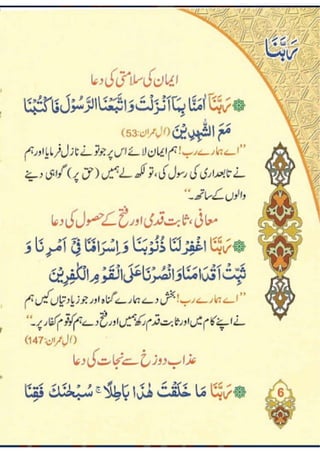 رَبَّنَا
ایمان کی سلامتی کی دعا
رَبَّنَآ اٰمَنَّا بِمَآ اَنْزَلْتَ وَاتَّبَعْنَا الرَّسُوْلَ فَاكْتُبْنَا
مَعَ الشّٰهِدِيْنَ (اٰل عمران:53)
’’اے ہمارے رب! ہم ایمان لائے اس پر جو تو نے نازل فرمایا اور ہم
نے تابعداری کی رسول کی، تو لکھ لے ہمیں (حق پر) گواہی دینے
والوں کے ساتھ۔‘‘
معافی، ثابت قدمی اور فتح کے حصول کی دعا
رَبَّنَا اغْفِرْ لَنَا ذُنُوْبَنَا وَاِسْرَافَنَا فِيْٓ اَمْرِنَا وَ
ثَبِّتْ اَقْدَامَنَا وَانْصُرْنَا عَلَى الْقَوْمِ الْكٰفِرِيْنَ
’’اے ہمارے رب! بخش دے ہمارے گناہ اور جو زیادتیاں کیں ہم
نے اپنے کام میں اور ثابت قدم رکھ ہمیں اور فتح دے ہم کو قوم کفار پر۔‘‘
(اٰل عمران:147)
عذاب دوزخ سے نجات کی دعا
رَبَّنَا مَا خَلَقْتَ هٰذَا بَاطِلًا ۚ سُبْحٰنَكَ فَقِنَا
6